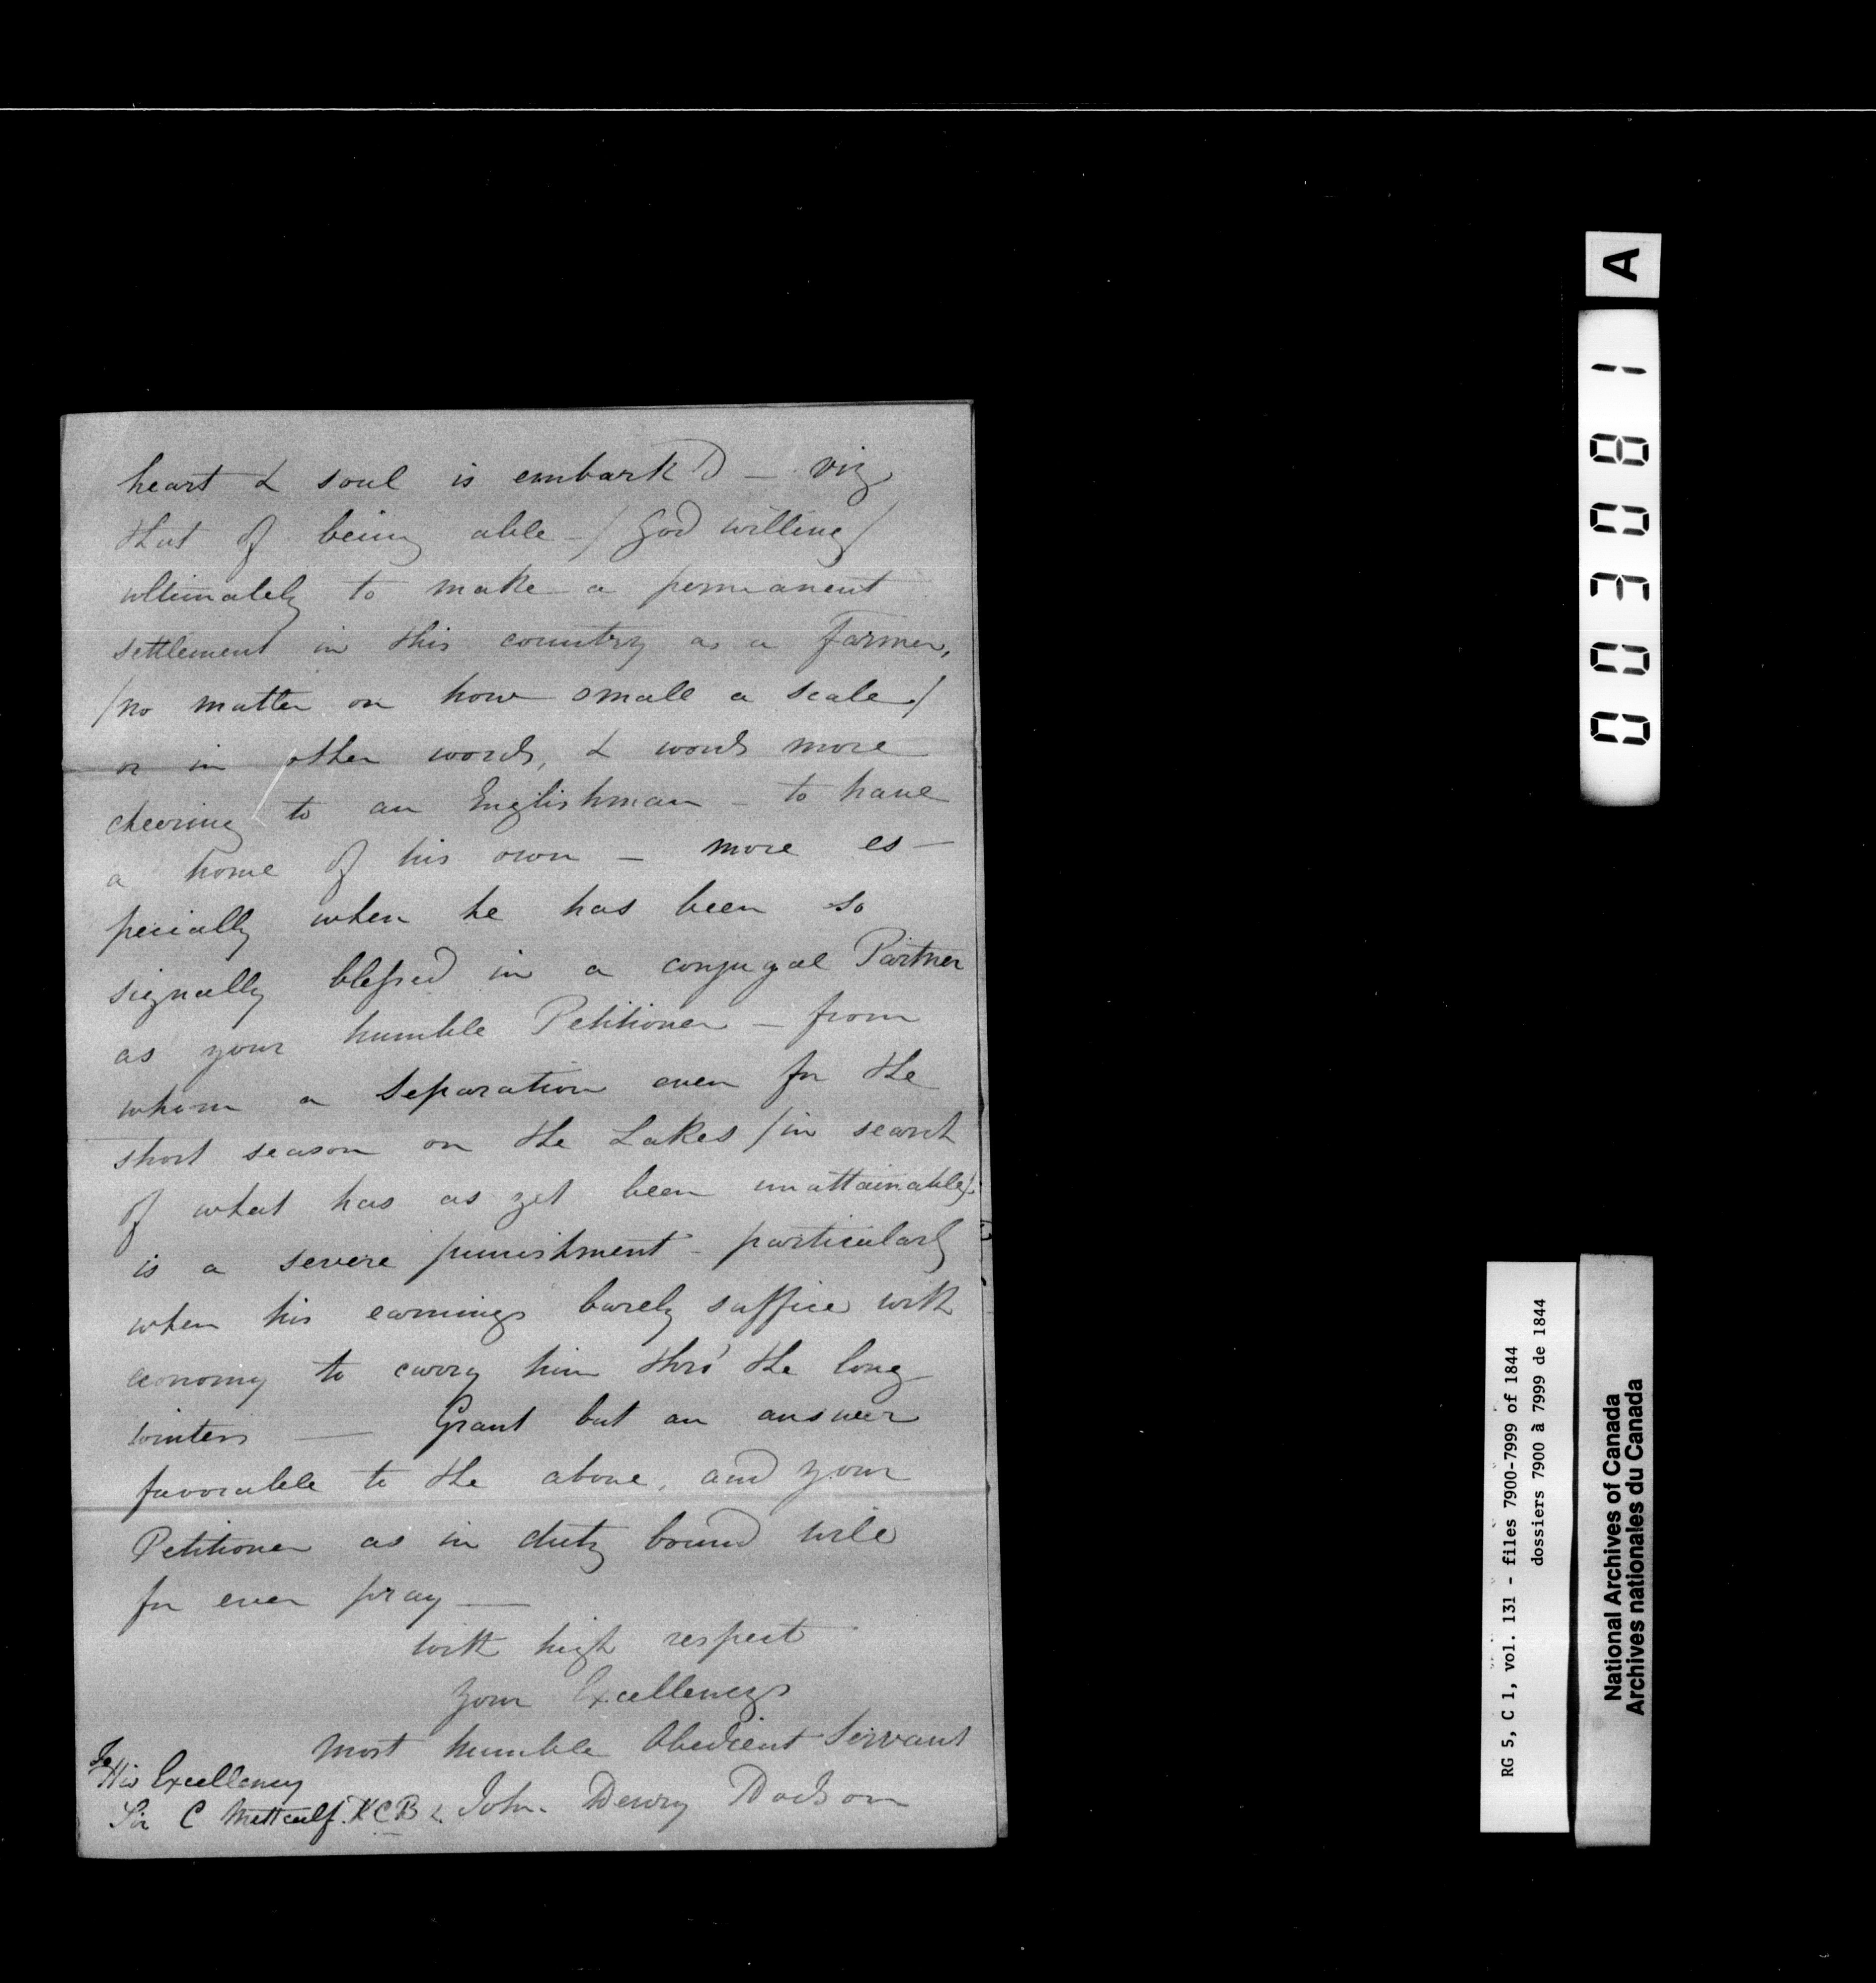 heart & soul is embark'd — viz
that of being able — / God willing /
ultimately to make a permanent
settlement in this country as a Farmer,
/ no matter on how small a scale /
or in other words, & words more
cheering to an Englishman — to have
a home of his own — more es—
pecially when he has been so
signally blessed in a conjugal Partner
as your humble Petitioner — from
whom a Separation even for the
short season on the Lakes / in search
of what has as yet been unattainable /
is a severe punishment — particularly
when his earnings barely suffice with
economy to carry him thro' the long
winters — Grant but an answer
favorable to the above, and your
Petitioner as in duty bound will
for ever pray —
with high respect
Your Excellencys
most humble Obedient Servant
To His Excellency
Sir C Mettcalf. KCB &. John Dewry Dodson
A
003081
RG 5, C 1, vol. 131 - files 7900-7999 of 1844
dossiers 7900 à 7999 de 1844
National Archives of Canada
Archives nationales du Canada